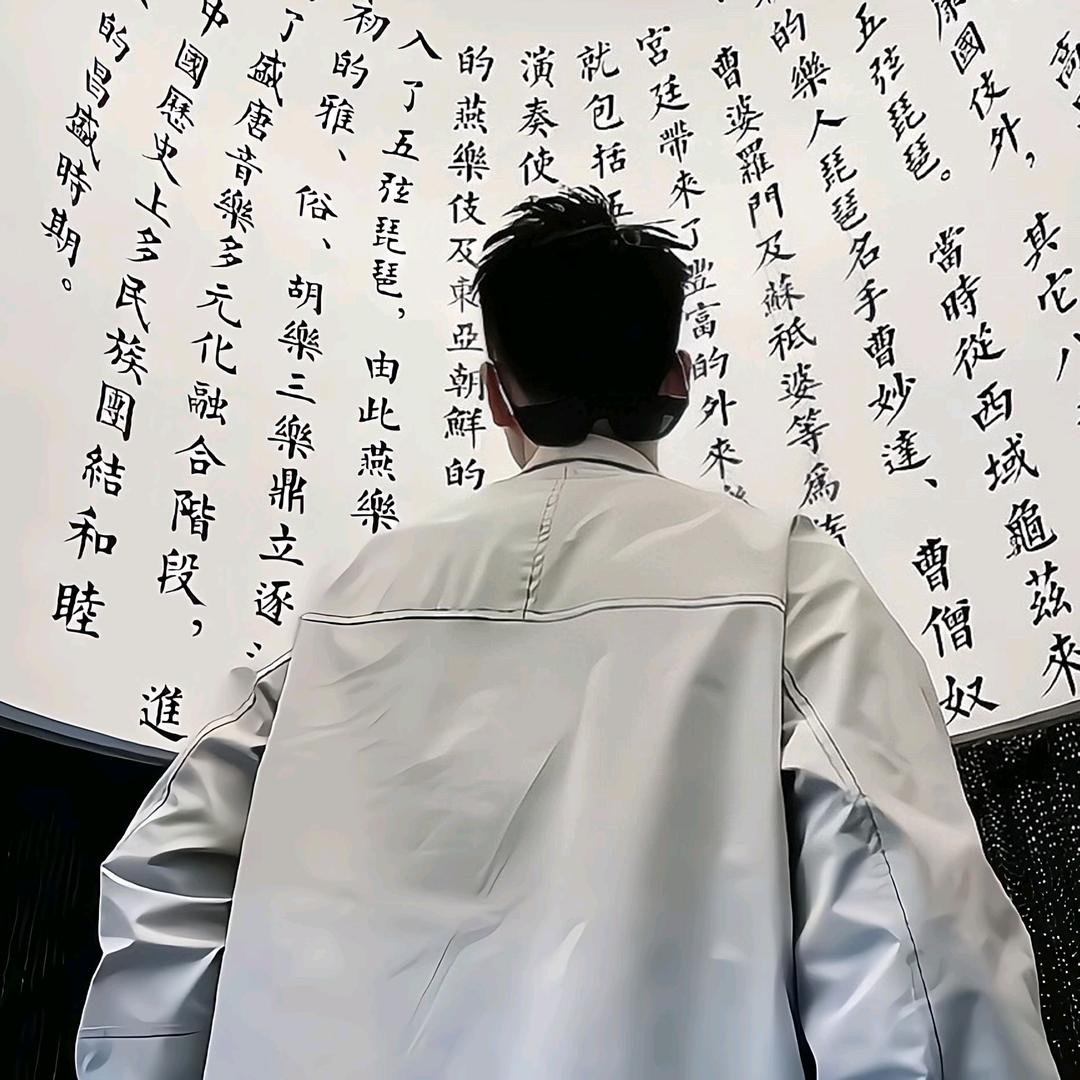 高
康國伎外，其它八
五弦琵琶。當時從西域龜茲來
的樂人琵琶名手曹妙達、曹僧奴
曹婆羅門及蘇祇婆等爲
宮廷帶來了豐富的外來
就包括五
演奏使
的燕樂伎及東亞朝鮮的
入了五弦琵琶，由此燕樂
初的雅、俗、胡樂三樂鼎立逐
了盛唐音樂多元化融合階段，進
中國歷史上多民族團結和睦
的昌盛時期。